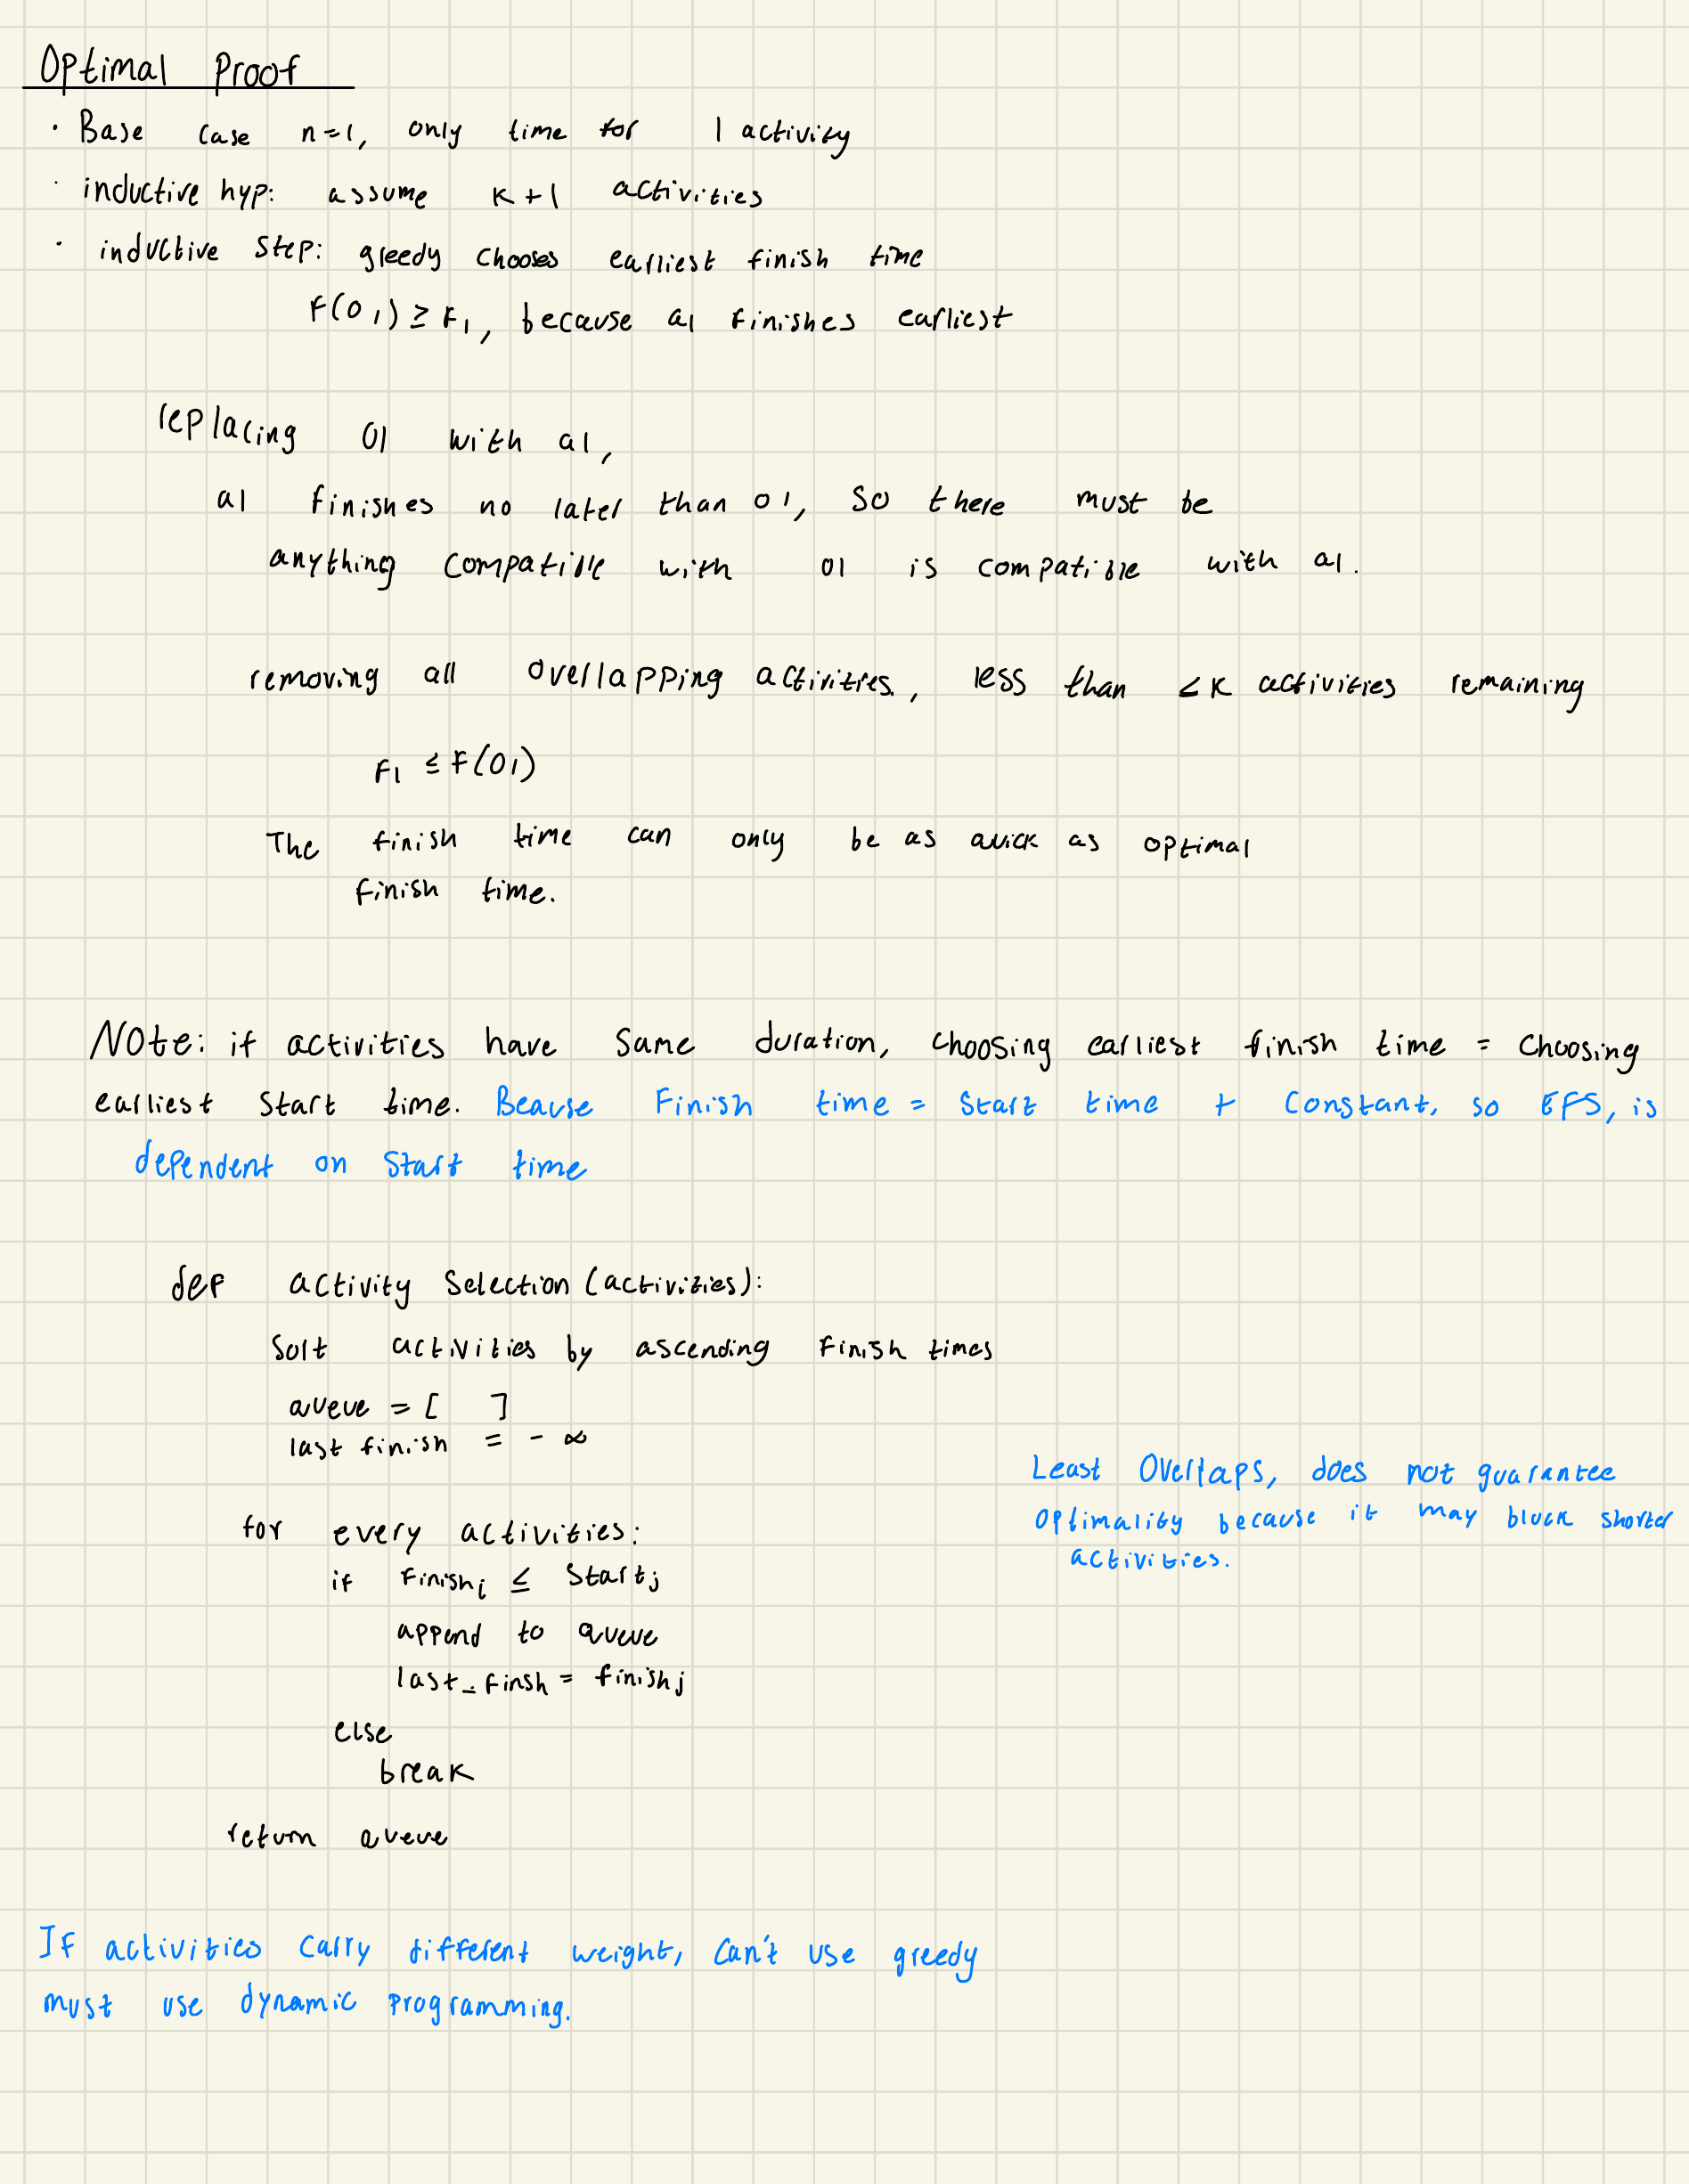 Optimal Proof
· Base case n=1, only time for 1 activity
· inductive hyp: assume k+1 activities
· inductive step: greedy chooses earliest finish time
F(O1) ≥ F1, because a1 finishes earliest
replacing O1 with a1,
a1 finishes no later than O1, so there must be
anything compatible with O1 is compatible with a1.
removing all overlapping activities, less than ≤k activities remaining
F1 ≤ F(O1)
The finish time can only be as quick as optimal
finish time.
Note: if activities have same duration, choosing earliest finish time = choosing
earliest start time. Beause Finish time = start time + constant, so EFS, is
dependent on start time
def activity selection (activities):
Sort activities by ascending finish times
queue = [ ]
last finish = - ∞
for every activities:
if finishi ≤ startj
append to queue
last_finsh = finishj
else
break
return queue
Least Overlaps, does not guarantee
optimality because it may block shorter
activities.
If activities carry different weight, can't use greedy
must use dynamic programming.